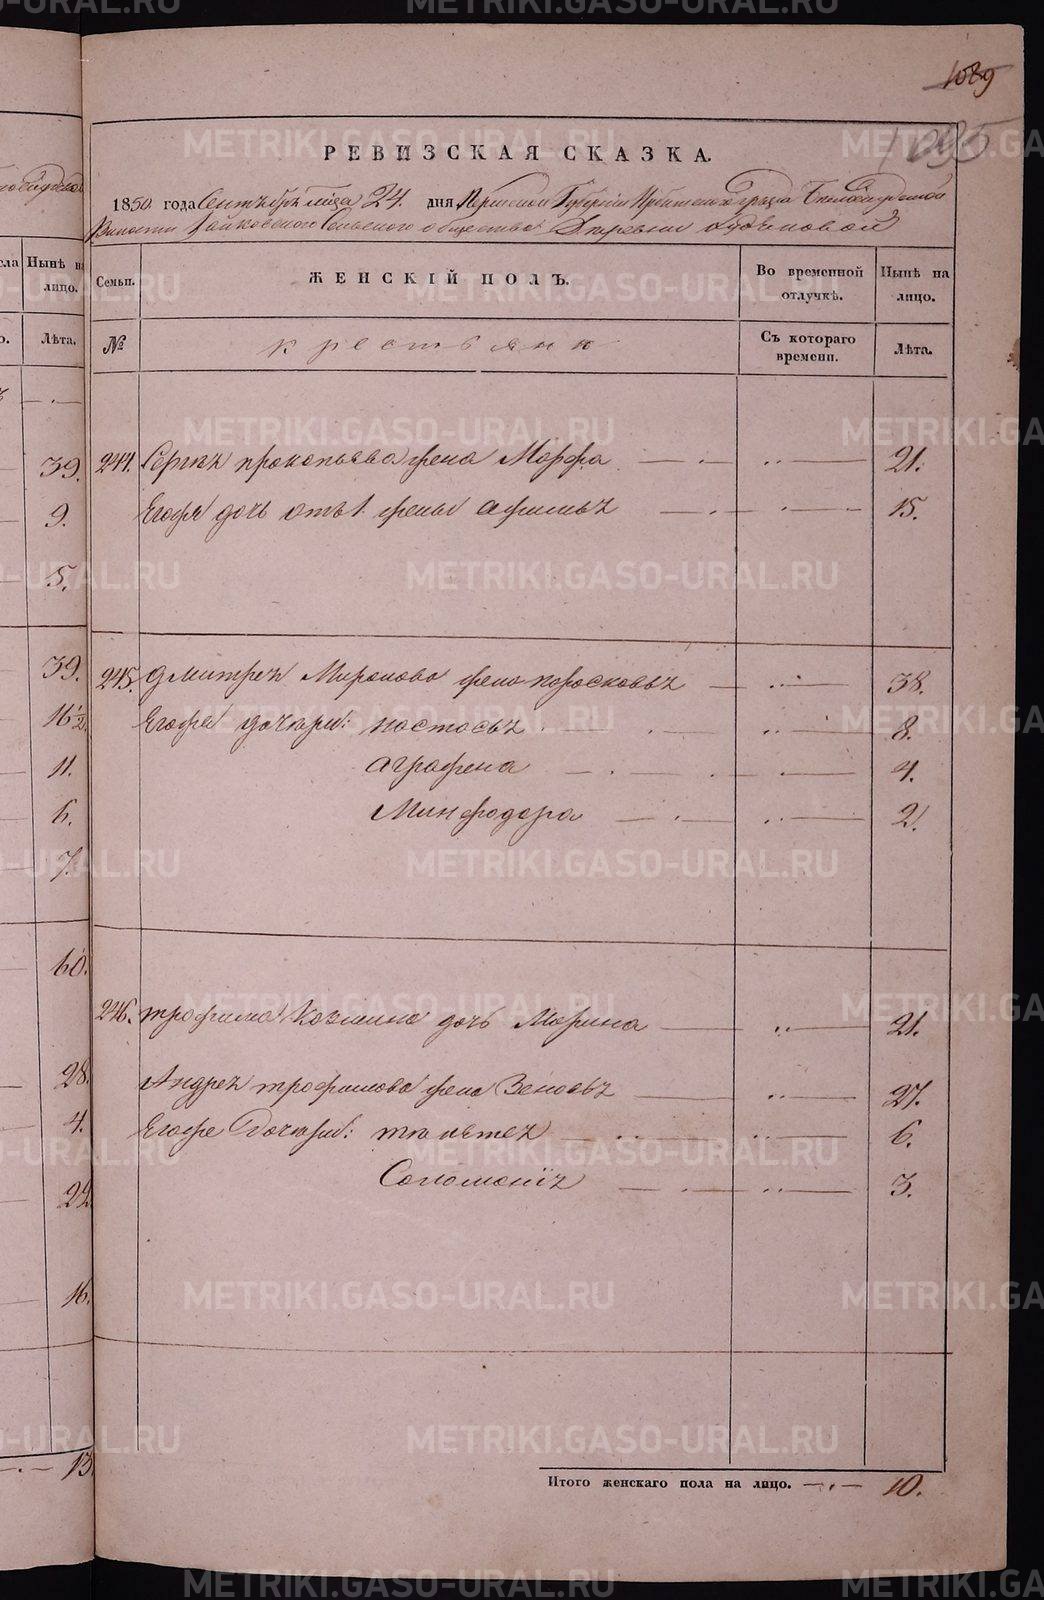 1089
1095
РЕВИЗСКАЯ СКАЗКА.
1850 года Сентября мца 24. дня, Пермской Губернiи Ирбитскаго уезда Белослудской
Волости Зайковского Сельского общества Деревни
ла Нынѣ на лицо. Семьи. ЖЕНСКIЙ ПОЛЪ. Во временной отлучкѣ. Нынѣ на лицо.
Лѣта. № крестьяне Съ котораго времени. Лѣта.
39. 244. Сергея прокопьева жена Марфа 21.
9. Егоже дочь отъ 1 жены афимья 15.
5.
39. 245. Дмитрея Миронова жена поросковья 38.
16 1/2. Егоже дочери: настасья 8.
11. аграфена 4.
6. Минфодора 2.
7.
60.
246. трофима Козмина дочь Марина 21.
28. Андрея трофимова жена Зеновья 27.
4. Егоже Дочери: 6.
22. Соломонiя 3.
16.
13. Итого женскаго пола на лицо. 10.
METRIKI.GASO-URAL.RU